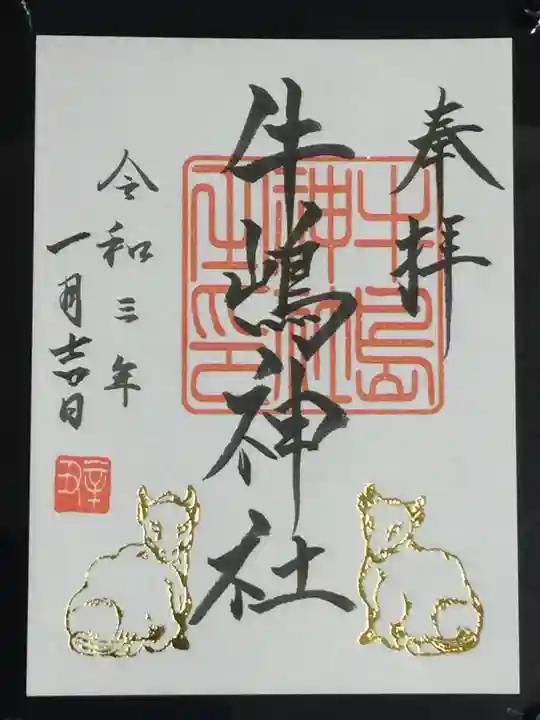 奉拝
牛嶋神社
牛島
神社
之印
令和三年
一月吉日
辛丑